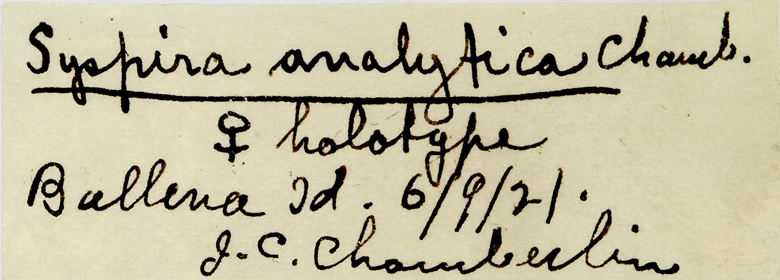 Syspira analytica Chamb.
♀ holotype
Ballena Id. 6/9/21.
J. C. Chamberlin